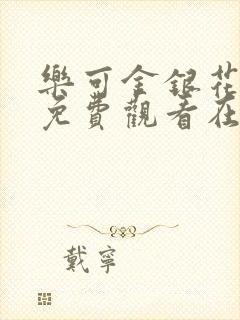 樂可金銀花
免費觀看在
戴寧